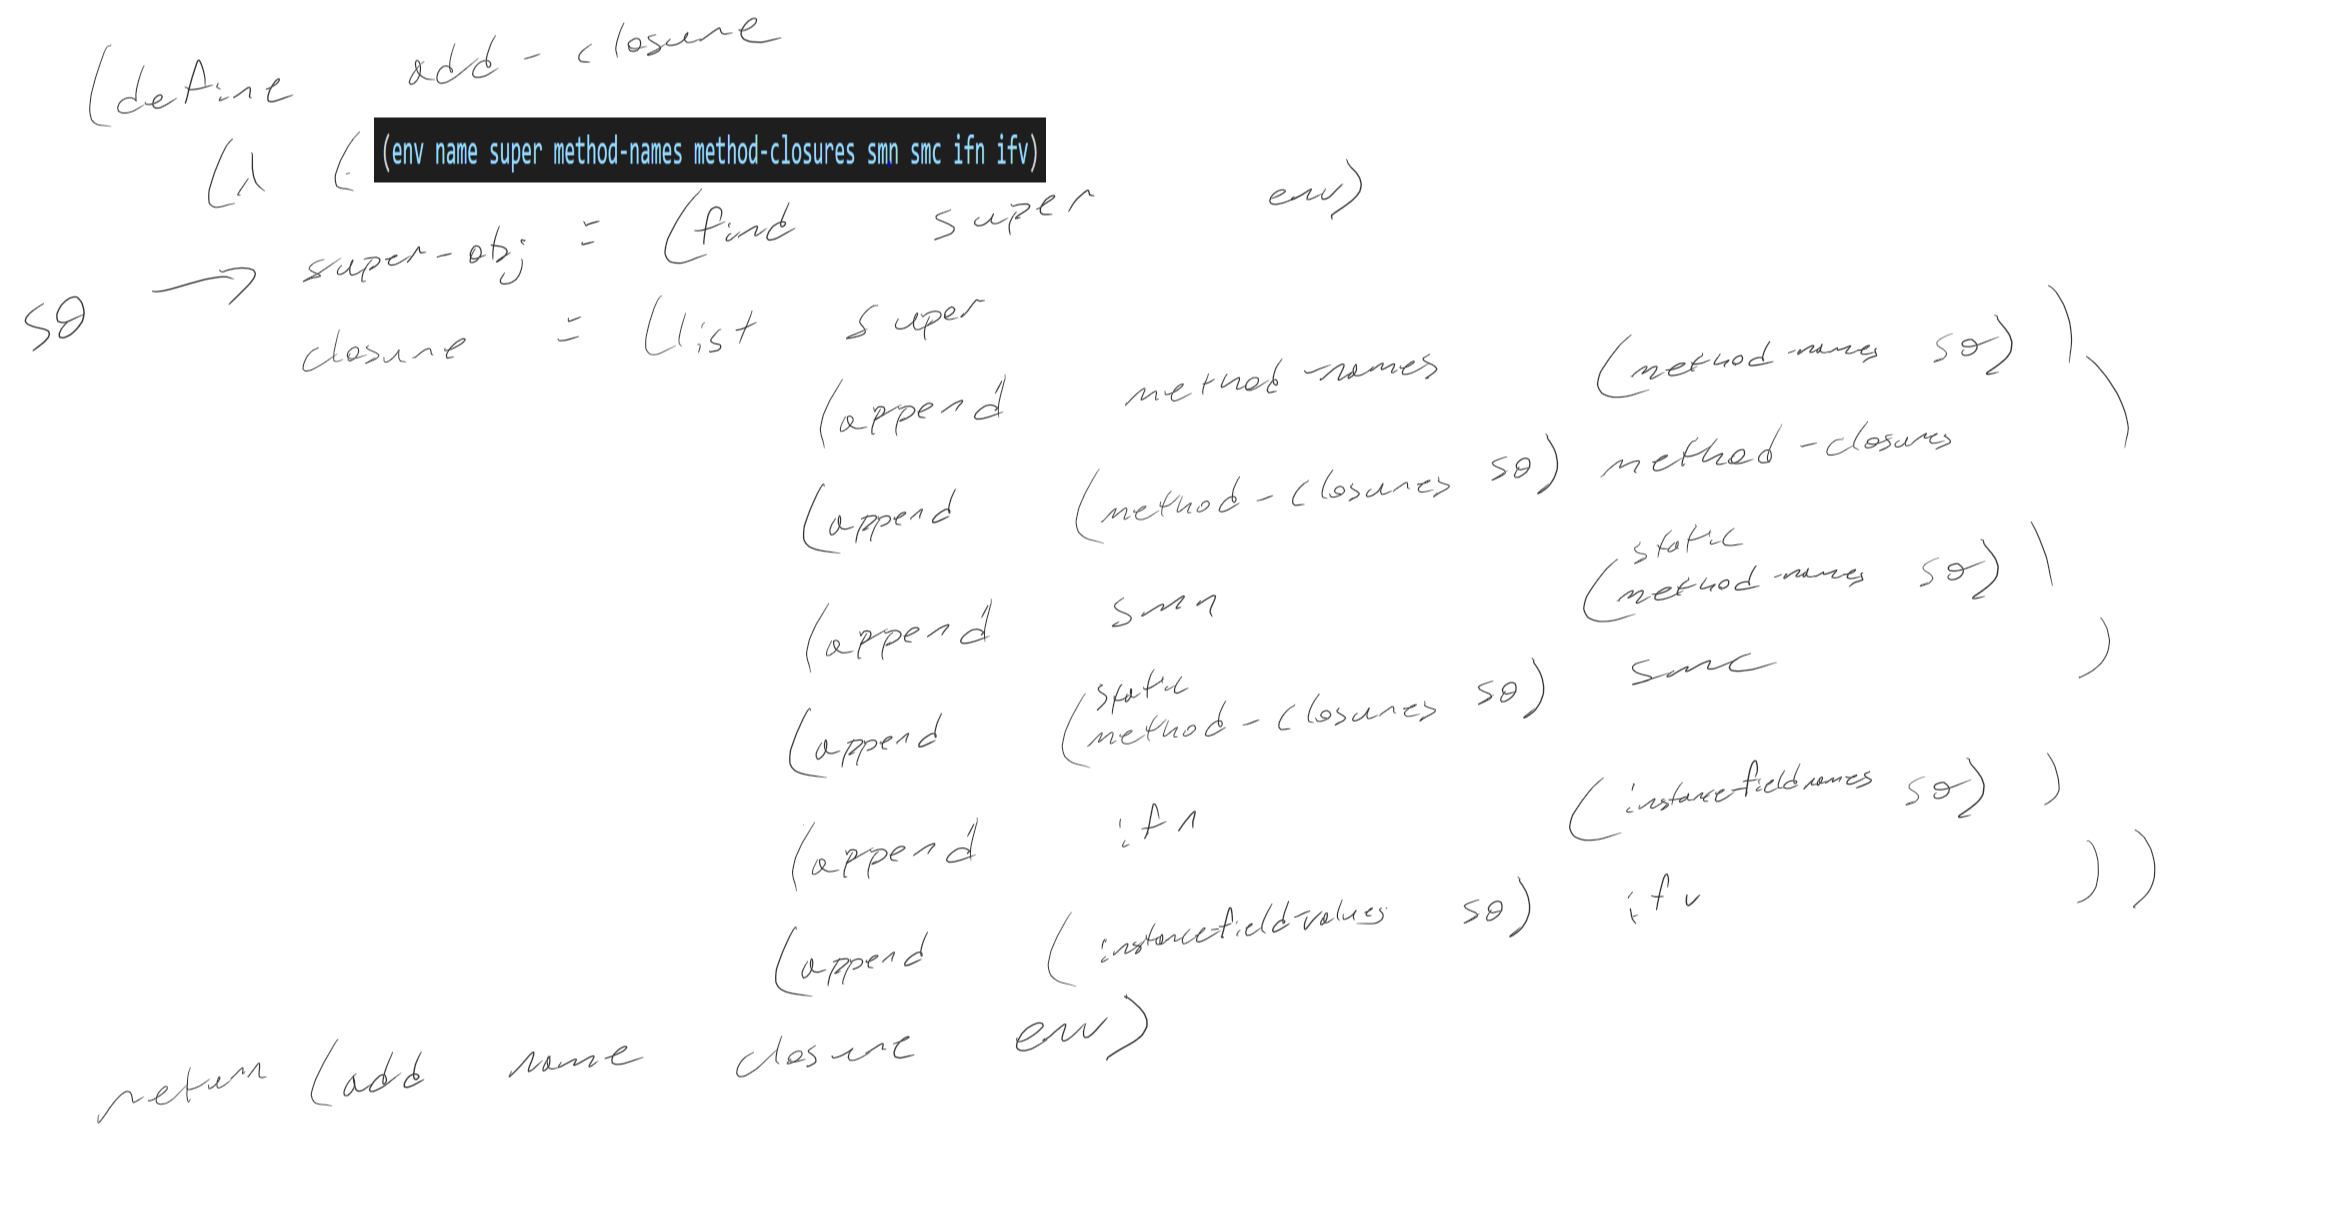 (define add-closure
(λ ( (env name super method-names method-closures smn smc ifn ifv)
so → super-obj = (find super env)
closure = (list super
(append method-names (method-names so))
(append (method-closures so) method-closures)
(append smn (static method-names so))
(append (static method-closures so) smc)
(append ifn (instance-field-names so))
(append (instance-field-values so) ifv))
return (add name closure env)